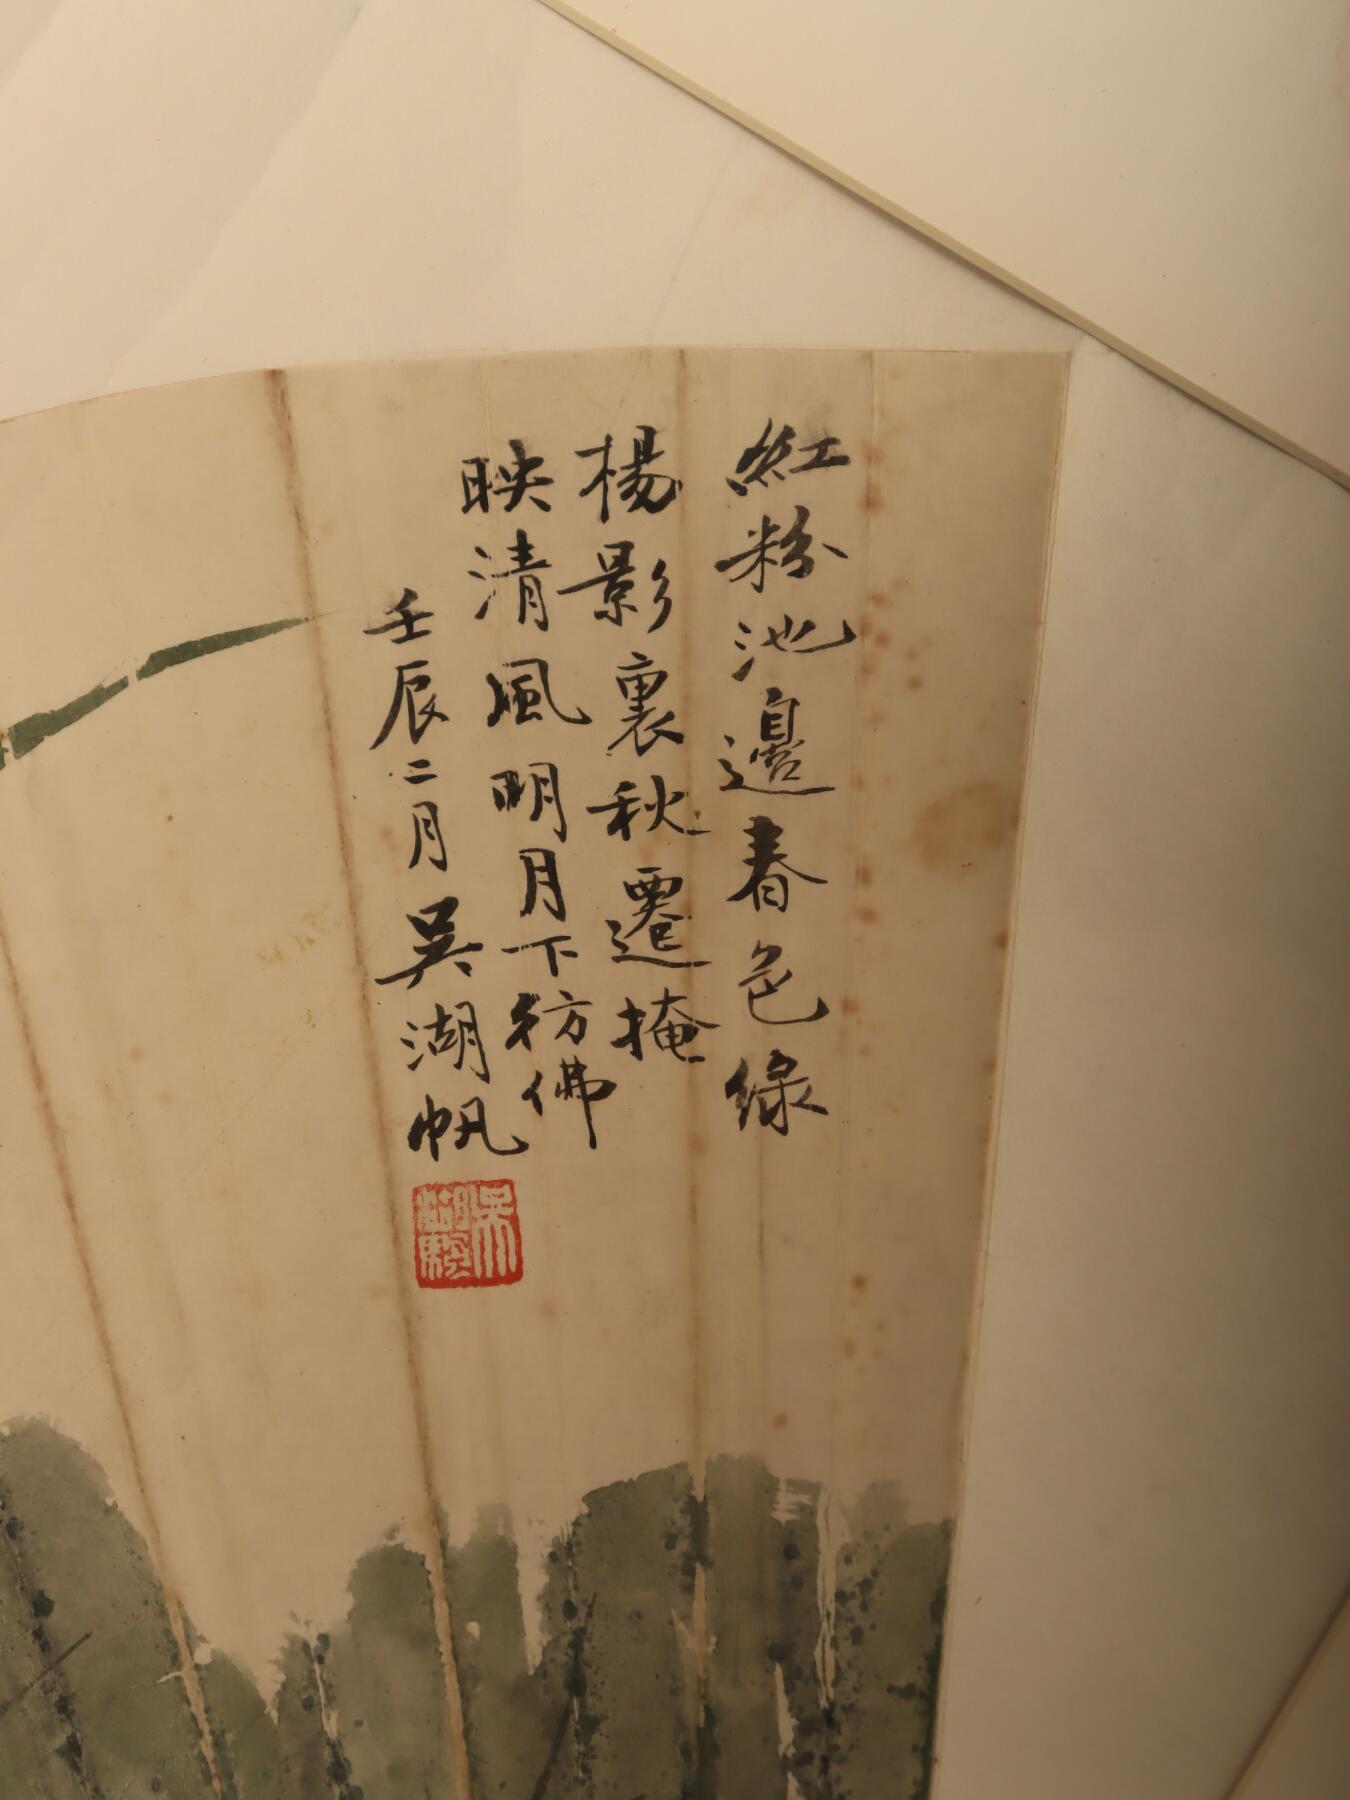 紅粉池邊春色綠
楊影裏秋遷掩
映清風明月下彷佛
壬辰二月吳湖帆
吳湖颿